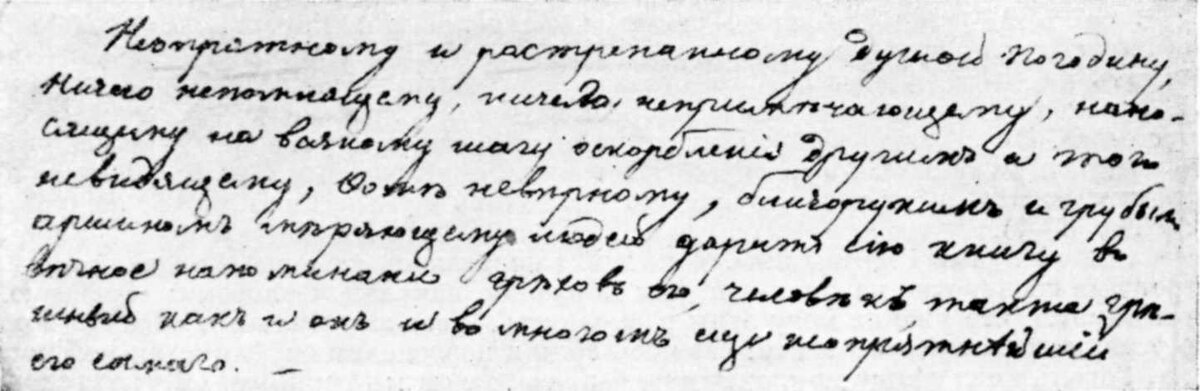 Неопрятному и растрепанному душой Погодину,
ничего непомнящему, ничего непримѣчающему, нано-
сящему на всякому шагу оскорбленія другимъ и того
невидящему, Ѳомѣ невѣрному, близорукимъ и грубымъ
аршиномъ мѣряющему людей дарить сію книгу въ
вѣчное напоминаніе грѣховъ его, человѣкъ также грѣ-
шный какъ и онъ и во многомъ еще неопрятнѣйшій
его самаго.